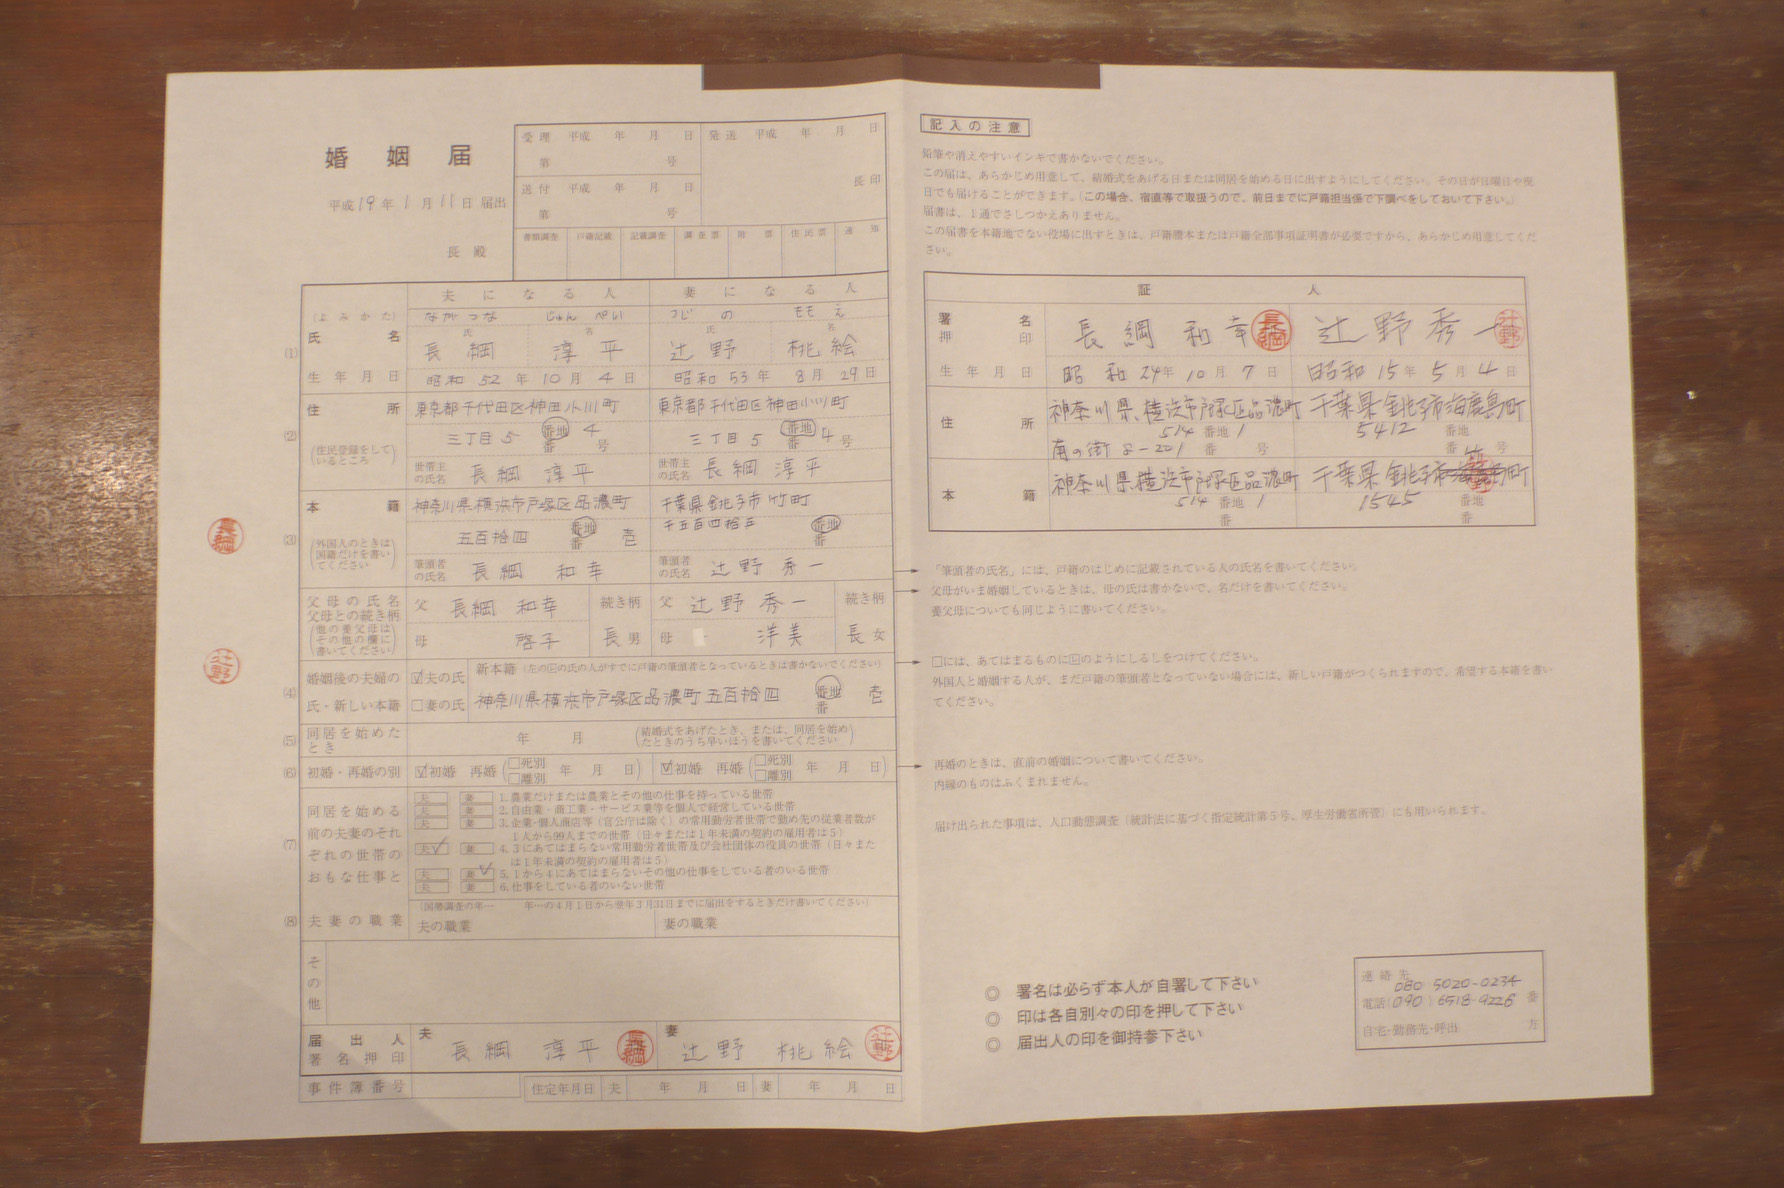 婚姻届
平成19年1月11日届出
長殿
受理 平成 年 月 日
第 号
送付 平成 年 月 日
第 号
発送 平成 年 月 日
長印
書類調査 戸籍記載 記載調査 調査票 附票 住民票 通知
夫になる人 妻になる人
(よみかた) ながつな じゅんぺい つじの ももえ
氏 名 氏 名
(1) 氏名 長綱 淳平 辻野 桃絵
生年月日 昭和52年10月4日 昭和53年8月29日
(2) 住所 東京都千代田区神田小川町 東京都千代田区神田小川町
(住民登録をしているところ) 三丁目5 番地 番 4号 三丁目5 番地 番 4号
世帯主の氏名 長綱 淳平 世帯主の氏名 長綱 淳平
(3) 本籍 神奈川県横浜市戸塚区品濃町 千葉県銚子市竹町
(外国人のときは国籍だけを書いてください) 五百拾四 番地 番 壱 千五百四拾五 番地 番
筆頭者の氏名 長綱 和幸 筆頭者の氏名 辻野 秀一
長綱
辻野
父母の氏名
父母との続き柄
(他の養父母はその他の欄に書いてください)
父 長綱 和幸 続き柄 父 辻野 秀一 続き柄
母 啓子 長男 母 洋美 長女
(4) 婚姻後の夫婦の氏・新しい本籍
☑夫の氏
□妻の氏
新本籍(左の☑の氏の人がすでに戸籍の筆頭者となっているときは書かないでください)
神奈川県横浜市戸塚区品濃町五百拾四 番地 番 壱
(5) 同居を始めたとき 年 月 (結婚式をあげたとき、または、同居を始めたときのうち早いほうを書いてください)
(6) 初婚・再婚の別 ☑初婚 再婚(□死別 □離別 年 月 日) ☑初婚 再婚(□死別 □離別 年 月 日)
(7) 同居を始める前の夫妻のそれぞれの世帯のおもな仕事と
夫 妻 1.農業だけまたは農業とその他の仕事を持っている世帯
夫 妻 2.自由業・商工業・サービス業等を個人で経営している世帯
夫 妻 3.企業・個人商店等(官公庁は除く)の常用勤労者世帯で勤め先の従業者数が
1人から99人までの世帯(日々または1年未満の契約の雇用者は5)
夫✓ 妻 4.3にあてはまらない常用勤労者世帯及び会社団体の役員の世帯(日々また
は1年未満の契約の雇用者は5)
夫 妻✓ 5.1から4にあてはまらないその他の仕事をしている者のいる世帯
夫 妻 6.仕事をしている者のいない世帯
(国勢調査の年… 年…の4月1日から翌年3月31日までに届出をするときだけ書いてください)
(8) 夫妻の職業 夫の職業 妻の職業
その他
届出人署名押印 夫 長綱 淳平 長綱 妻 辻野 桃絵 辻野
事件簿番号 住定年月日 夫 年 月 日 妻 年 月 日
記入の注意
鉛筆や消えやすいインキで書かないでください。
この届は、あらかじめ用意して、結婚式をあげる日または同居を始める日に出すようにしてください。その日が日曜日や祝
日でも届けることができます。(この場合、宿直等で取扱うので、前日までに戸籍担当係で下調べをしておいて下さい。)
届書は、1通でさしつかえありません。
この届書を本籍地でない役場に出すときは、戸籍謄本または戸籍全部事項証明書が必要ですから、あらかじめ用意してくだ
さい。
証人
署名押印 長綱 和幸 長綱 辻野 秀一 辻野
生年月日 昭和24年10月7日 昭和15年5月4日
住所 神奈川県横浜市戸塚区品濃町 千葉県銚子市海鹿島町
514 番地 1 5412 番地
南の街8-201 番 号 番 号
本籍 神奈川県横浜市戸塚区品濃町 千葉県銚子市 町
514 番地 1 1545 番地
番 番
「筆頭者の氏名」には、戸籍のはじめに記載されている人の氏名を書いてください。
父母がいま婚姻しているときは、母の氏は書かないで、名だけを書いてください。
養父母についても同じように書いてください。
□には、あてはまるものに☑のようにしるしをつけてください。
外国人と婚姻する人が、まだ戸籍の筆頭者となっていない場合には、新しい戸籍がつくられますので、希望する本籍を書い
てください。
再婚のときは、直前の婚姻について書いてください。
内縁のものはふくまれません。
届け出られた事項は、人口動態調査(統計法に基づく指定統計第5号、厚生労働省所管)にも用いられます。
◎ 署名は必らず本人が自署して下さい
◎ 印は各自別々の印を押して下さい
◎ 届出人の印を御持参下さい
連絡先
080 5020-0234
電話(090)6518-9226番
自宅・勤務先・呼出 方